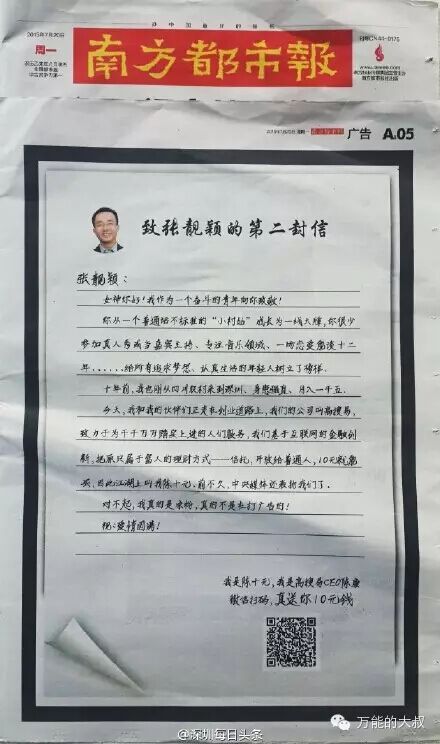 办中国最好的报纸
2015年7月20日
周一
南方都市報
刊号CN44-0175
2015年7月20日 星期一
广告 A05
致张靓颖的第二封信
张靓颖：
女神你好！我作为一个奋斗的青年向你致敬！
你从一个普通话不标准的“小村姑”成长为一线大牌，你很少
参加真人秀或当嘉宾主持、专注音乐领域，一场恋爱爱淡十二
年......给所有追求梦想、认真生活的年轻人树立了榜样。
十年前，我也刚从四川农村来到深圳、身患强直、月入一千五。
今天，我和我的伙伴们正走在创业道路上，我们的公司叫高搜易，
致力于为千千万万踏实上进的人们服务，我们基于互联网的金融创
新，把原只属于富人的理财方式——信托，开放给普通人，10元就能
买，因此江湖上叫我陈十元，前不久，中央媒体还表扬我们了。
对不起，我真的是凉粉，真的不是来打广告的！
祝：爱情圆满！
我是陈十元，我是高搜易CEO陈康
微信扫码，真送你10元钱
@深圳每日头条
万能的大叔